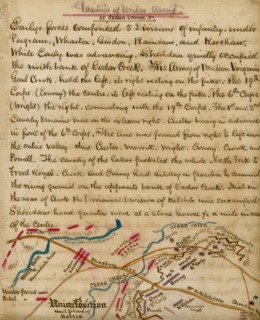 Position of Union Army
AT CEDAR CREEK, VA
Early's forces comprised 5 Divisions of infantry, under
Pegram, Wharton, Gordon, Ramseur, and Kershaw.
While Early was advancing, Sheridan quietly occupied
the north bank of Cedar Creek. The Army of Western Virginia
Genl Crook, held the left, its right resting on the pike. The 19th
Corps (Emory) the centre, its left resting on the pike. The 6th Corps
(Wright) the right, connecting with the 19th Corps. The 1st and 3d
Cavalry Divisions was on the extreme right, Custer being in advance
in front of the 6th Corps. The line was formed from right to left across
the entire valley thus Custer, Merritt, Wright, Emory, Crook and
Powell. The Cavalry of the latter picketed the whole North Fork to
Front Royal. Crook and Emory had batteries in position to command
the rising ground on the opposite bank of Cedar Creek. Just in
the rear of Crook the Provisional Division of Kitchin was encamped
Sheridan's head quarters were at a stone house ½ a mile in rear
of the Centre.
CEDAR CREEK
Union forces
Rebel
Union Position
and part of
BATTLE
Powell